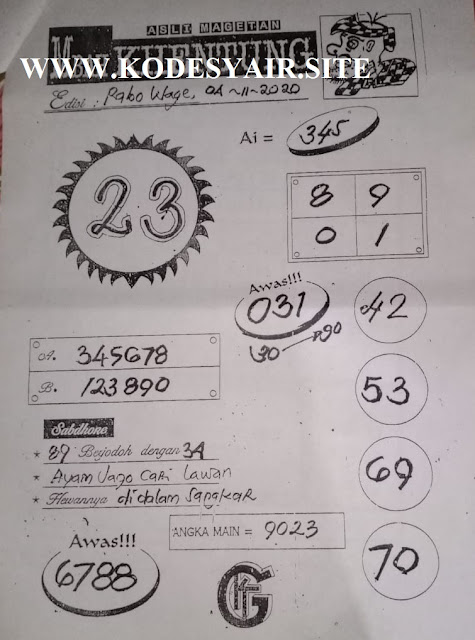 ASLI MAGETAN
MBAH KHENTUNG
WWW.KODESYAIR.SITE
Edisi : Rabo Wage, 04-11-2020
Ai = 345
23
8 9
0 1
Awas!!!
031
42
A. 345678
B. 123890
53
Sabdhone
* 89 Berjodoh dengan 34
* Ayam Jago Cari Lawan
* Hewannya didalam Sangkar
69
ANGKA MAIN = 9023
Awas!!!
6788
70